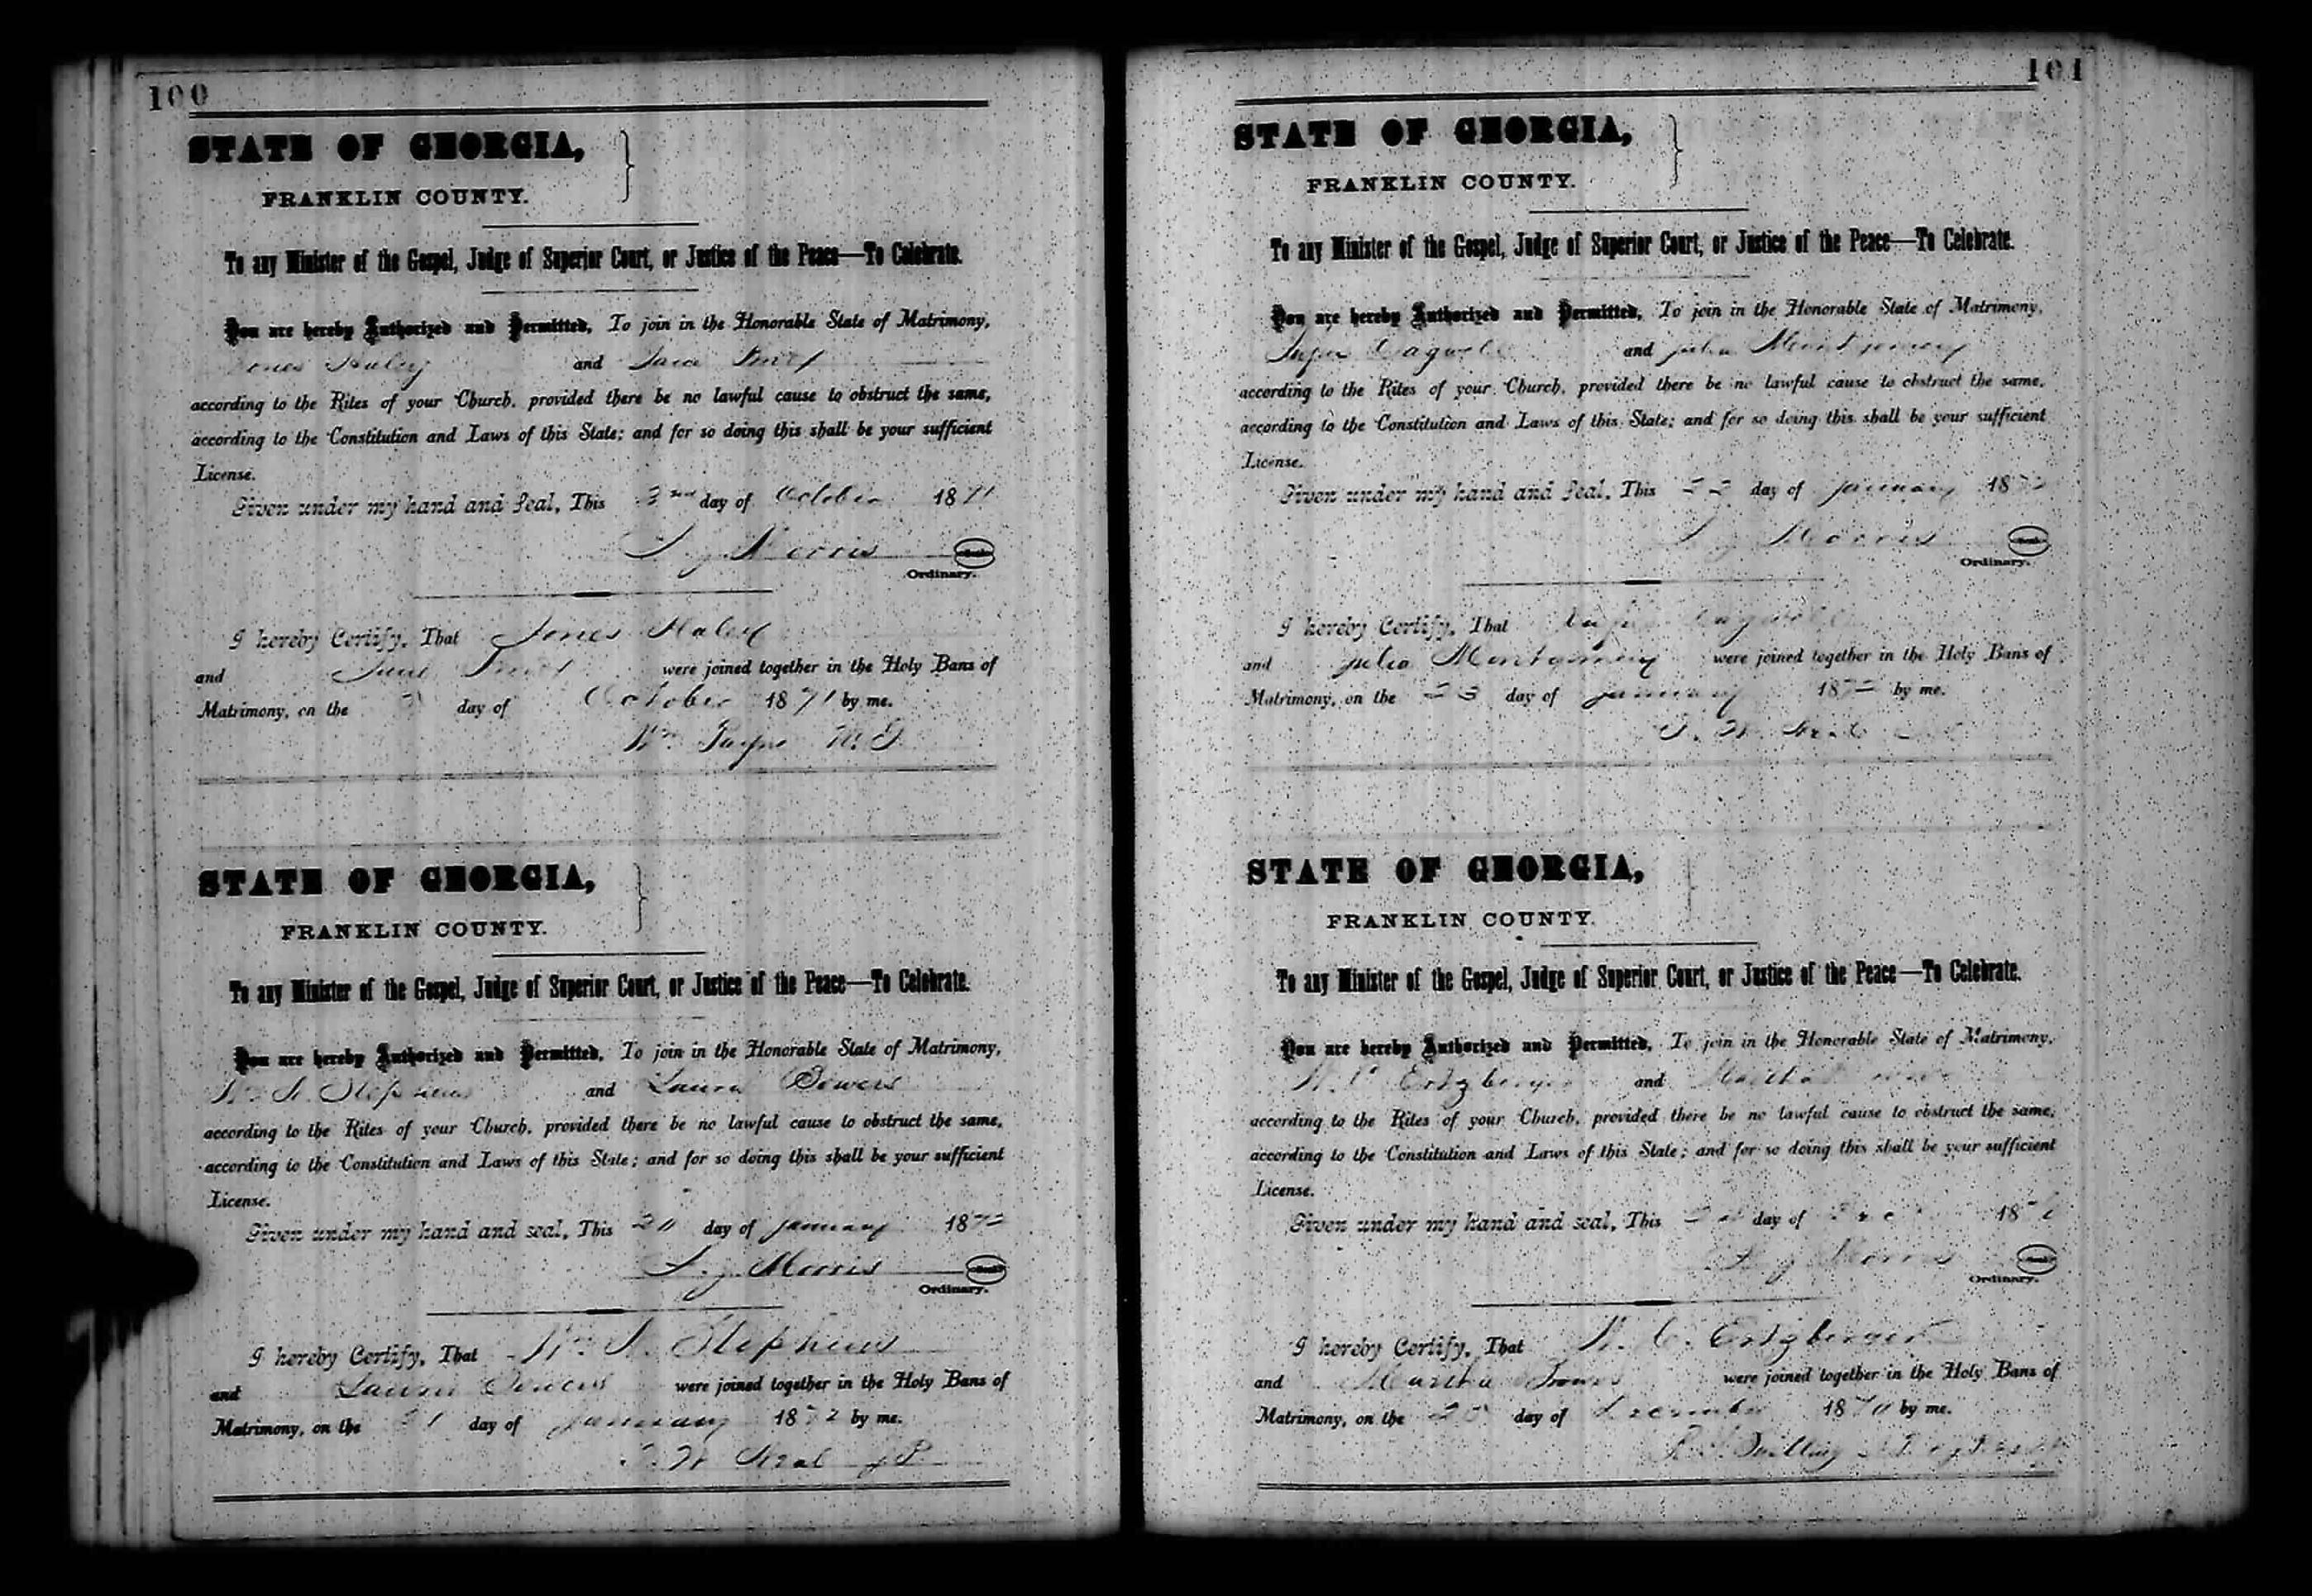 100
STATE OF GEORGIA,
FRANKLIN COUNTY.
To any Minister of the Gospel, Judge of Superior Court, or Justice of the Peace—To Celebrate.
You are hereby Authorized and Permitted, To join in the Honorable State of Matrimony,
Jones Haley and Jane
according to the Rites of your Church, provided there be no lawful cause to obstruct the same,
according to the Constitution and Laws of this State; and for so doing this shall be your sufficient
License.
Given under my hand and Seal, This 3rd day of October 1871
Morris
Ordinary.
I hereby Certify, That Jones Haley
and Jane were joined together in the Holy Bans of
Matrimony, on the day of October 1871 by me.
Wm Payne M. G.
STATE OF GEORGIA,
FRANKLIN COUNTY.
To any Minister of the Gospel, Judge of Superior Court, or Justice of the Peace—To Celebrate.
You are hereby Authorized and Permitted, To join in the Honorable State of Matrimony,
Stephens and Laura Bowers
according to the Rites of your Church, provided there be no lawful cause to obstruct the same,
according to the Constitution and Laws of this State; and for so doing this shall be your sufficient
License.
Given under my hand and seal, This day of January 1872
Morris
Ordinary.
I hereby Certify, That Stephens
and Laura Bowers were joined together in the Holy Bans of
Matrimony, on the 21 day of January 1872 by me.
J P
101
STATE OF GEORGIA,
FRANKLIN COUNTY.
To any Minister of the Gospel, Judge of Superior Court, or Justice of the Peace—To Celebrate.
You are hereby Authorized and Permitted, To join in the Honorable State of Matrimony,
and Julia Montgomery
according to the Rites of your Church, provided there be no lawful cause to obstruct the same,
according to the Constitution and Laws of this State; and for so doing this shall be your sufficient
License.
Given under my hand and Seal, This 22 day of January 1872
Morris
Ordinary.
I hereby Certify, That
and Julia Montgomery were joined together in the Holy Bans of
Matrimony, on the 23 day of January 1872 by me.
STATE OF GEORGIA,
FRANKLIN COUNTY.
To any Minister of the Gospel, Judge of Superior Court, or Justice of the Peace—To Celebrate.
You are hereby Authorized and Permitted, To join in the Honorable State of Matrimony,
Ertzberger and Martha
according to the Rites of your Church, provided there be no lawful cause to obstruct the same,
according to the Constitution and Laws of this State; and for so doing this shall be your sufficient
License.
Given under my hand and seal, This day of 18
Morris
Ordinary.
I hereby Certify, That Ertzberger
and Martha were joined together in the Holy Bans of
Matrimony, on the day of December 1870 by me.